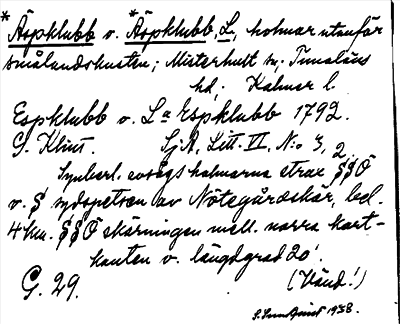 *Äspklubb v. *Äspklubb, L., holmar utanför
smålandskusten; Misterhult sn, Tunaläns
hd, Kalmar l.
Espklubb v. La Espklubb 1792.
G. Klint. Sj.A. Litt. VI, N:o 3, 2.
Synberl. avsågs holmarna strax SSÖ
v. S sydspetsen av Nötegårdskär, bel.
4 km. SSÖ skärningen mell. norra kart-
kanten v. längdgrad 20'.
G. 29. (Vänd!)
1938.